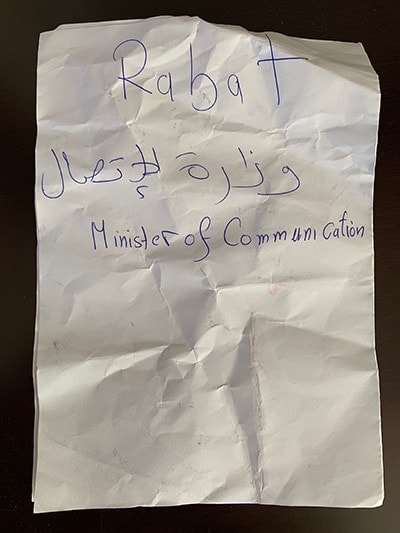 Rabat
وزارة لإتصال
Minister of Communication